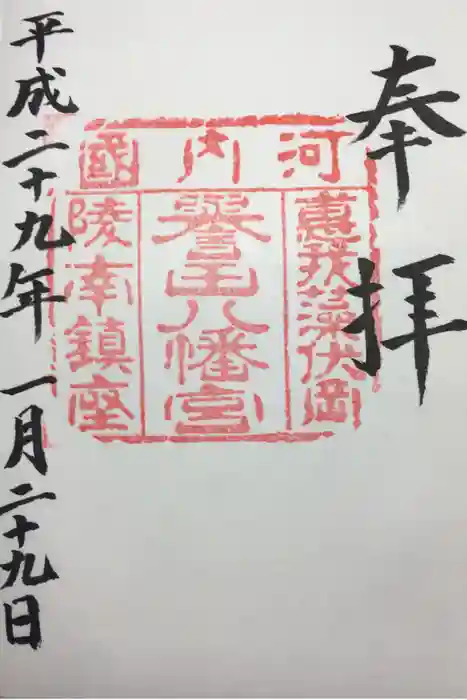 奉拝
河内國
惠我藻伏岡
譽田八幡宮
陵南鎮座
平成二十九年一月二十九日